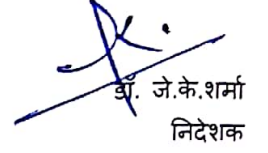 डॉ. जे.के.शर्मा
निदेशक